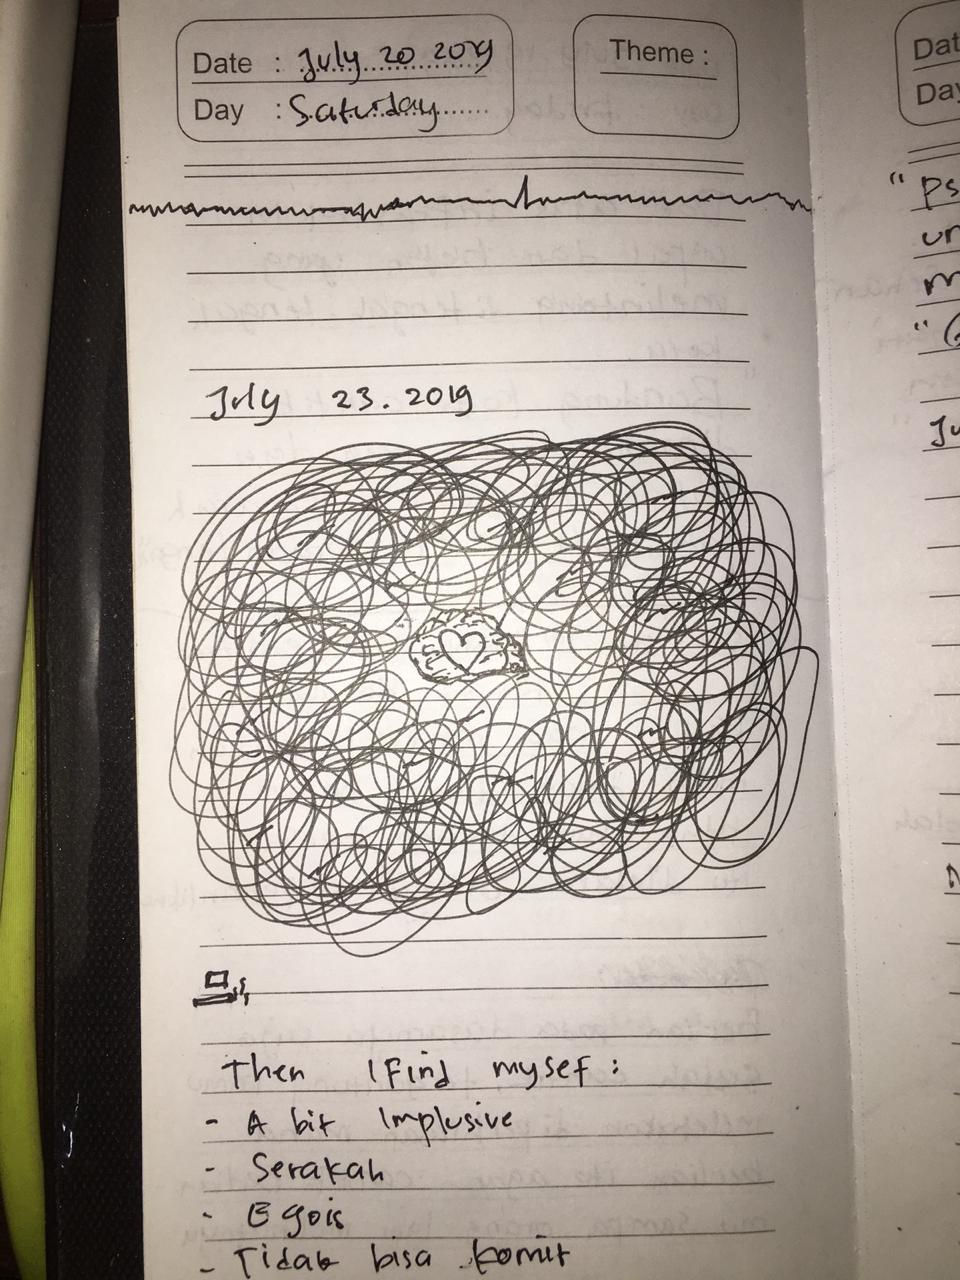 Date : July 20 2019
Day : Saturday
Theme :
July 23. 2019
Then I Find mysef :
- A bit Implusive
- Serakah
- Egois
- Tidak bisa komit
Dat
Day
" Ps
un
m
"
Ju